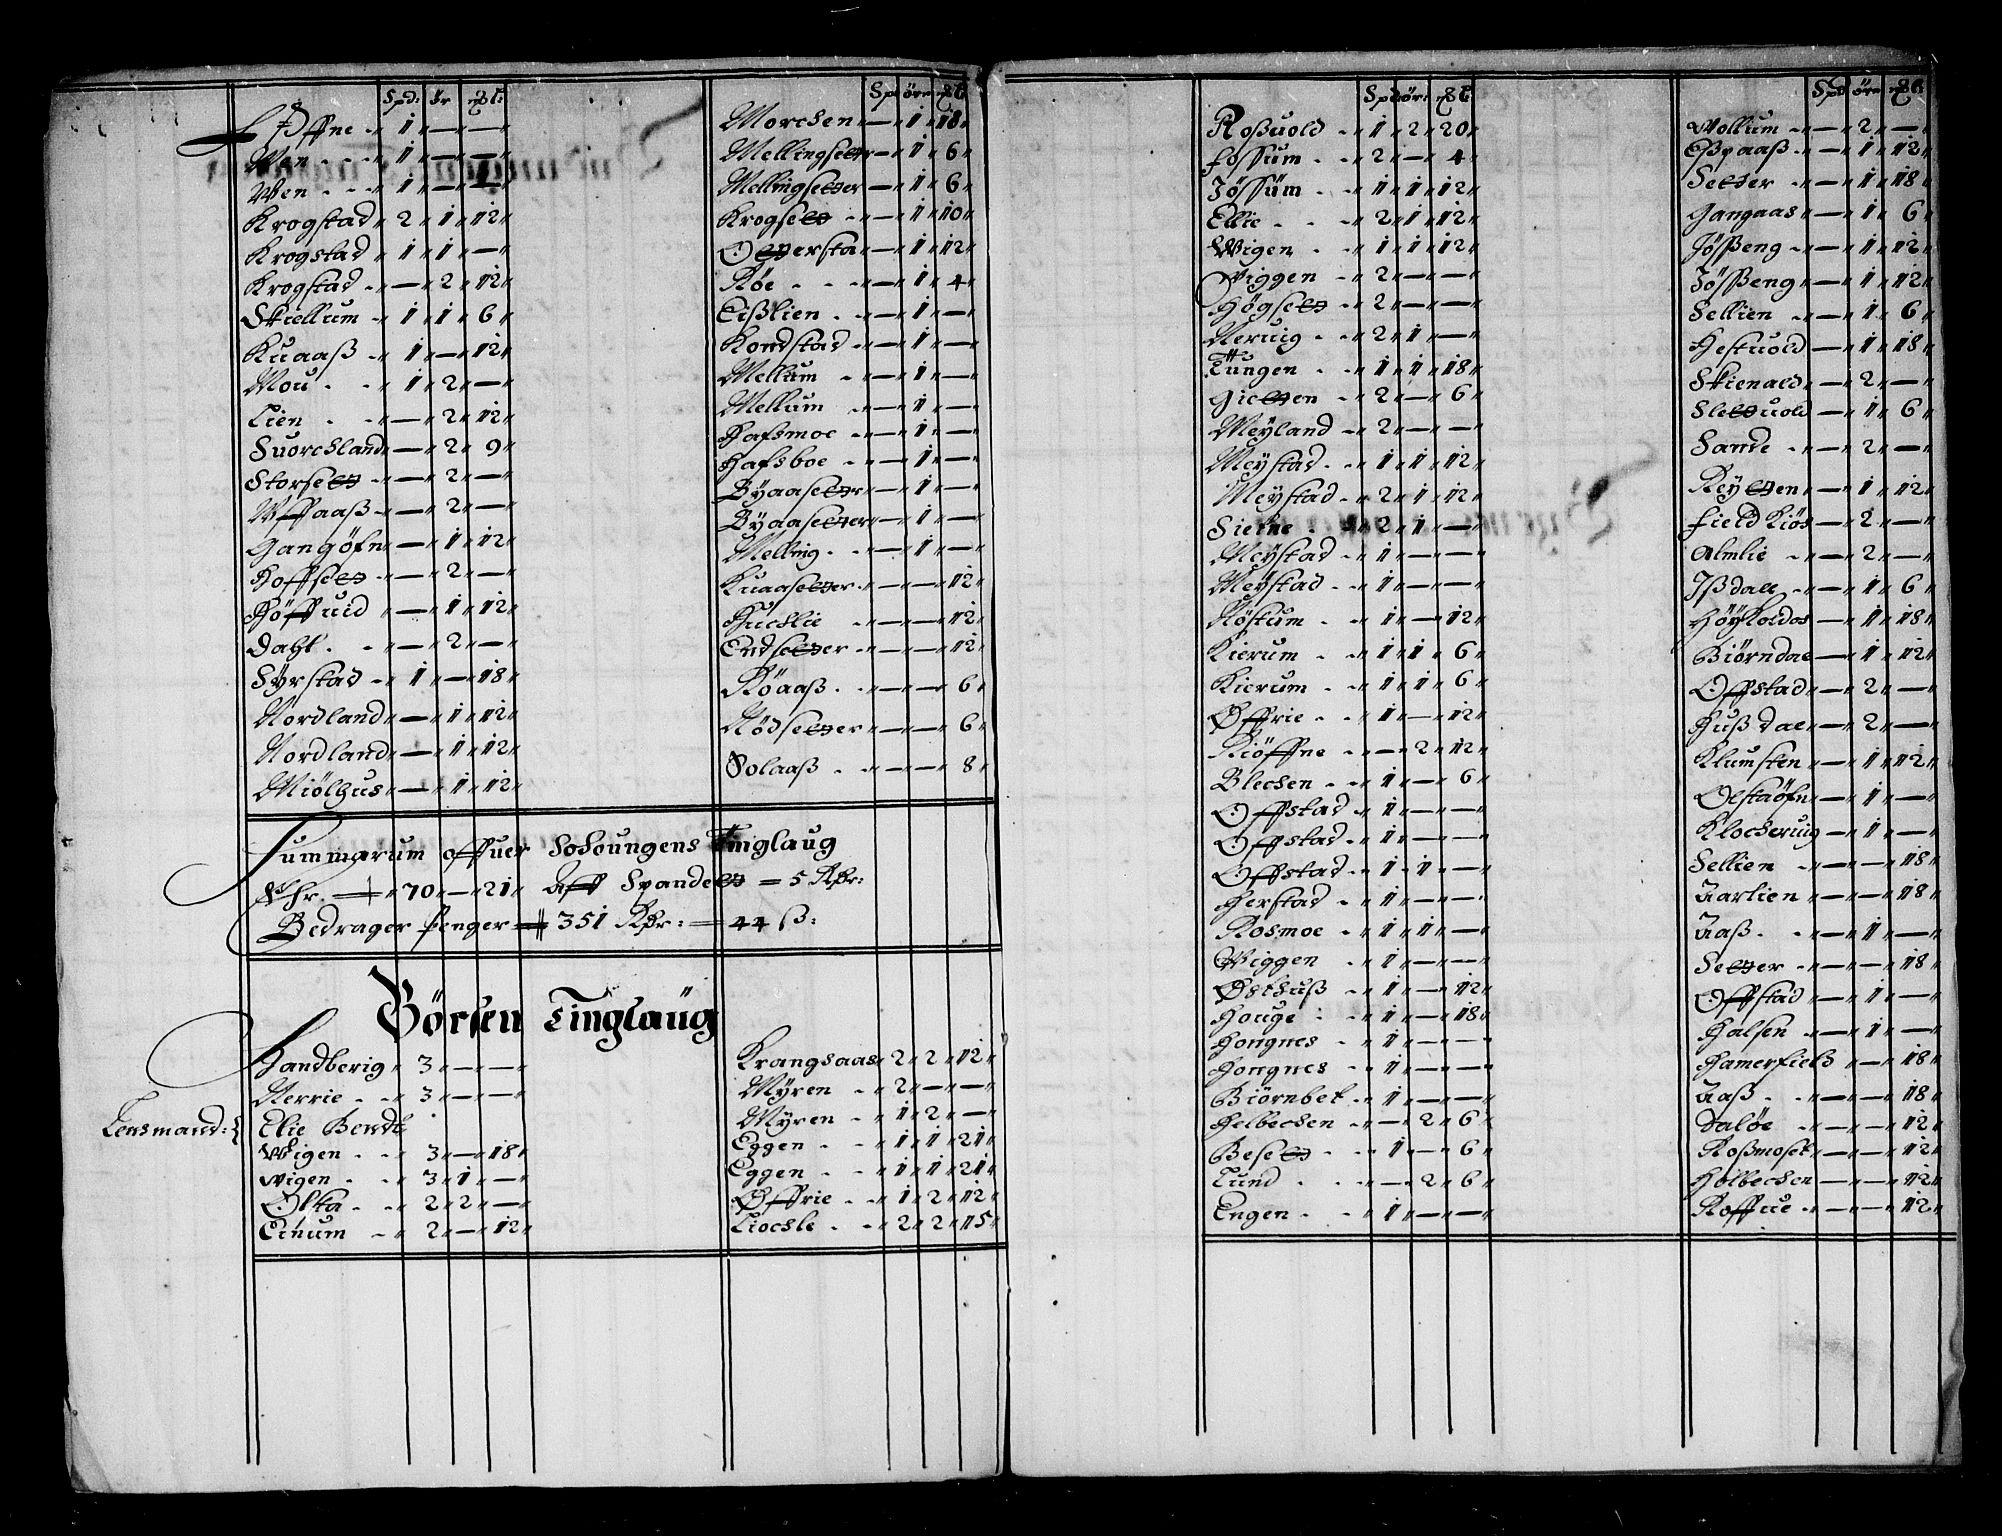 Spd: ör mkl:
Öffne - 1 - - -
Wen - - - 1 - - -
Wen - - - 1 - - -
Krogstad 2 1 12
Krogstad 1 1 -
Krogstad - - 2 12
Skiellum - 1 1 6
Kuaaß - 1 - 12
Mou - - 1 2 -
Lien - - - 2 12
Suorchland - 2 9
Storsett - - 2 -
Wffaaß - - 2 -
Gangöfn - 1 12
Hoffsett - - 2 -
Höffuid - 1 12
Dahl - - 2 -
Syrstad - 1 - 18
Nordland - 1 12
Nordland - 1 12
Miölhus - 1 12
Sp ör mkl
Morchen - 1 18
Mellingsetter - 1 6
Mellingsetter - 1 6
Krogsett - - 1 10
Otterstad - 1 12
Röe - - - 1 4
Eißlien - - 1 -
Kondstad - 1 -
Mellum - - 1 -
Mellum - 1 -
Hafsmoe - 1 -
Hafsboe - - 1 -
Byaasetter - 1 -
Byaasetter - 1 -
Melling - - 1 -
Kuaasetter - - 12
Huchlie - - 12
Endsetter - - 12
Röaaß - - - 6
Nödsetter - - 6
Solaaß - - - 8
Summarum offuer Sohoungens Tinglaug
Thr. 70 - 21 aff Spandett = 5 Rdr:
Bedrager penger 351 Rdr: = 44 ß:
Börsen Tinglaug
Handberig 3 - - -
Nerrie - - 3 - - -
Lensmand: { Elie Bendt
Wigen - - 3 - 18
Wigen - - 3 1 -
Olsta - - 2 2 -
Einum - 2 - 12
Krangsaas 2 2 12
Myren - 2 - -
Myren - 1 2 -
Eggen - - 1 1 21
Eggen - - 1 1 21
Öffrie - - 1 2 12
Liochle - - 2 2 15
Spd ör: mkl
Roßuold - 1 2 20
Fossum - - 2 - 4
Jössum - 1 1 12
Ellie - - 2 1 12
Wigen - 1 1 12
Wiggen - 2 - -
Högsett - 2 - -
Neruig - - 2 1 -
Tungen - 1 1 18
Gietten - 2 - 6
Meyland - 2 - -
Meystad - 1 1 12
Meystad - 2 1 12
Sietne - 2 1 -
Meystad - 1 - -
Meystad - 1 - -
Röstum - 1 - 12
Kierum - - 1 1 6
Kierum - - 1 1 6
Öffrie - - 1 - 12
Kiöffne - - 2 12
Blechen - - 1 - 6
Offstad - 1 - -
Offstad - 1 - -
Offstad - 1 1 -
Herstad - 1 - -
Rosmoe - 1 1 -
Wiggen - 1 - -
Østhuß - 1 - 12
Houge - 1 - 18
Hongnes - 1 - -
Hongnes - 1 - -
Biörnbet - 1 - -
Helbechen - - 2 6
Besett - - 1 - 6
Lund - - - 2 6
Engen - - 1 - -
Spd ör mkl
Wollum - - 2 -
Eßpaaß - - 1 12
Setter - - 1 18
Gangaas - 1 6
Jößeng - - 1 12
Jößeng - 1 12
Sellien - - 1 6
Hestuold - 1 18
Skienald - 2 -
Slettuold - 1 6
Sande - - 2 -
Reytten - 1 12
Field Kiös - 2 -
Almlie - - 2 -
Ißdall - - 1 6
Höykoldos - 1 18
Biörndal - 1 12
Offstad - 2 -
Huß dal - 2 -
Klumsten - 1 12
Olstaöfn - 1 -
Klocheruig - 1 -
Sellien - - - 18
Aarlien - - 18
Aaß - - 1 -
Setter - - - 18
Offstad - 1 -
Halsen - 1 -
Hamerfield - - 18
Aaß - - - 18
Dalöe - - - 12
Roßmoslet - - 12
Holbechen - - 12
Roffue - - - 12